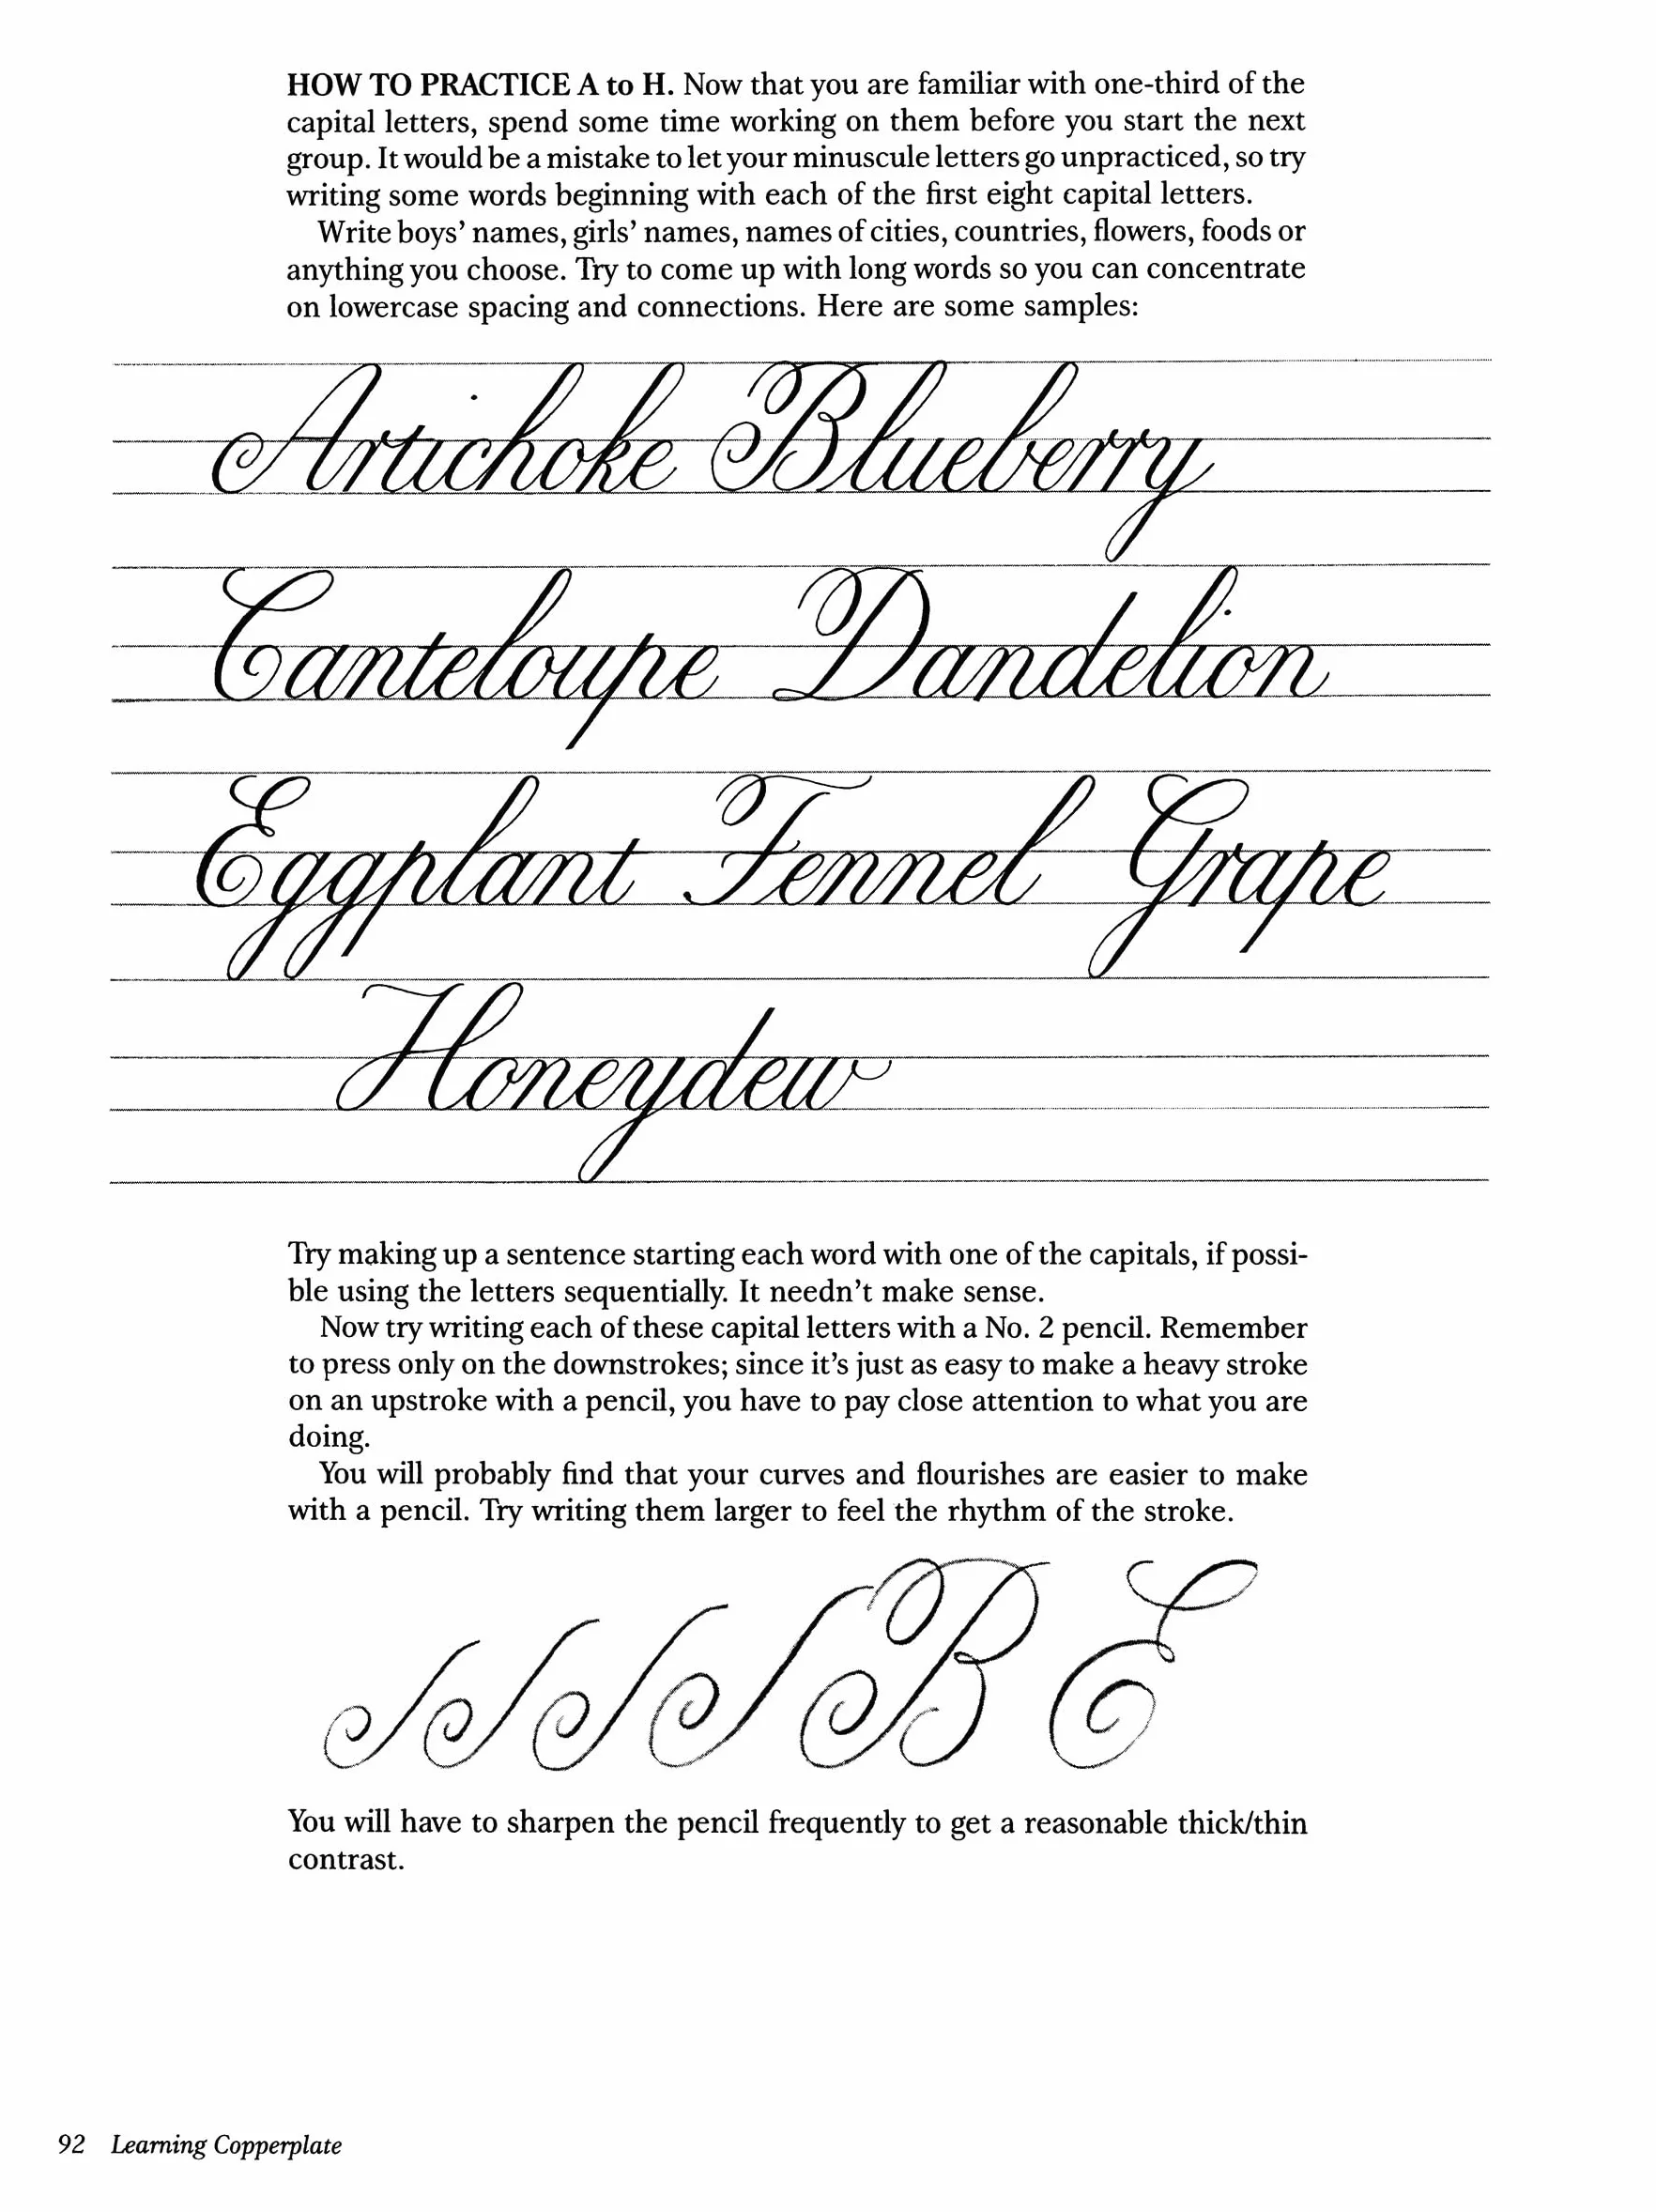 HOW TO PRACTICE A to H. Now that you are familiar with one-third of the
capital letters, spend some time working on them before you start the next
group. It would be a mistake to let your minuscule letters go unpracticed, so try
writing some words beginning with each of the first eight capital letters.
Write boys’ names, girls’ names, names of cities, countries, flowers, foods or
anything you choose. Try to come up with long words so you can concentrate
on lowercase spacing and connections. Here are some samples:
Artichoke Blueberry
Canteloupe Dandelion
Eggplant Fennel Grape
Honeydew
Try making up a sentence starting each word with one of the capitals, if possi-
ble using the letters sequentially. It needn’t make sense.
Now try writing each of these capital letters with a No. 2 pencil. Remember
to press only on the downstrokes; since it’s just as easy to make a heavy stroke
on an upstroke with a pencil, you have to pay close attention to what you are
doing.
You will probably find that your curves and flourishes are easier to make
with a pencil. Try writing them larger to feel the rhythm of the stroke.
B E
You will have to sharpen the pencil frequently to get a reasonable thick/thin
contrast.
92 Learning Copperplate